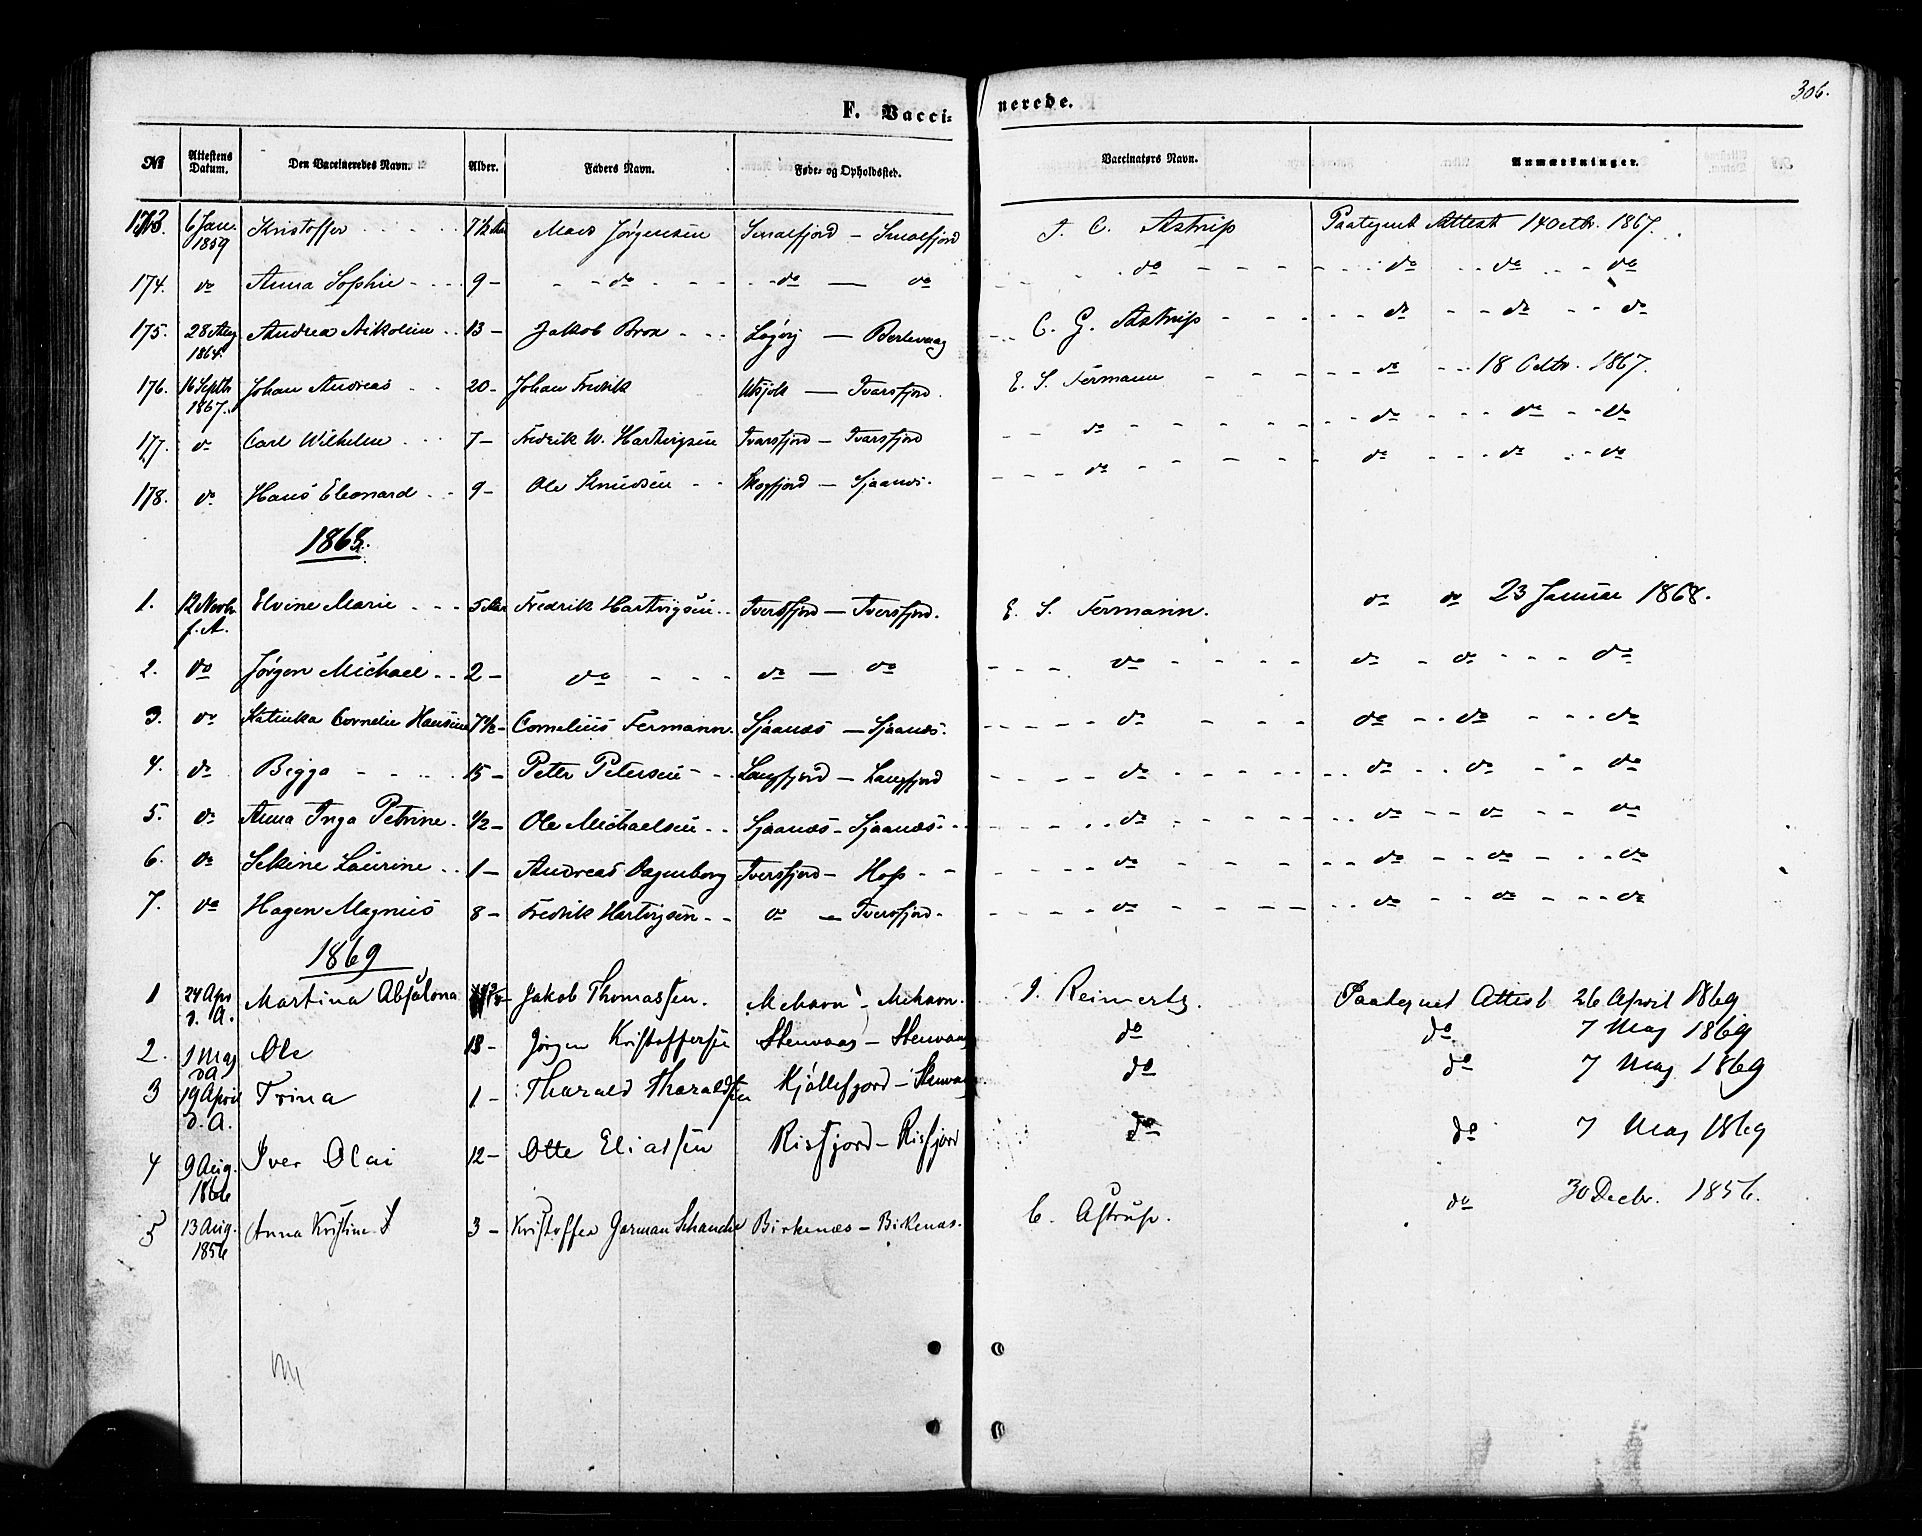 306.
F. Vacci-
nerede.
No Attestens Datum. Den Vaccineredes Navn. Alder. Faders Navn. Føde- og Opholdssted. Vaccinatørs Navn. Anmærkninger.
173 6 Jan. 1859 Kristoffer 7½ Mads Jørgensen Smalfjord - Smalfjord J. C. Astrup Paategnet Attest 14 Octbr. 1867.
174. do Anna Sophie 9 - do do — do do do do do
175. 28 Aug 1864. Andrea Nikoline 13 - Jakob Brox — Berlevaag C. G. Astrup do do do
176. 16 Septbr 1867. Johan Andreas 20 - Johan Fredrik Utsjok — Tvarsfjord. E. S. Fermann do 18 Octbr. 1867.
177. do Carl Wilhelm 7 - Fredrik W. Hartvigsen Tvarsfjord - Tvarsfjord do do do do
178. do Hans Eleonard 9 - Ole Knudsen Skogfjord - Sjaanæs. do do do do
1868.
1. 12 Novbr. f. A. Elvine Marie 5 Fredrik Hartvigsen Tversfjord - Tversfjord. E. S. Fermann. do do 23 Januar 1868.
2. do Jørgen Michael 2 - do do — do do do do do
3. do Katinka Cornelie Hansine Cornelius Fermann. Sjaanæs - Sjaanæs. do do do do
4. do Bigga 15 - Peter Petersen Langfjord - Langfjord do do do do
5. do Anna Inga Petrine ½ - Ole Michaelsen Sjaanæs - Sjaanæs. do do do do
6. do Sekine Laurine 1 - Andreas Dagenborg Tversfjord - Hop do do do do
7. do Hagen Magnus 8 - Fredrik Hartvigsen do - Tversfjord. do do do do
1869
1 24 Apr d. A. Martina Absalona Jakob Thomassen. Mehavn - Mehavn. J. Reimertz. Paategnet Attest 26 April 1869
2. 1 May d A Ole 13 - Jørgen Kristoffersen Stenvaag - Stenvaag do do 7 May 1869
3 19 April d. A. Trina 1 - Tharald Tharaldsen Kjøllefjord - Stenvaag do do 7 May 1869
4 9 Aug. 1866 Iver Olai 12 - Otte Eliassen Risfjord - Risfjord do do 7 May 1869
5 13 Aug. 1856 Anna Kristine S 3 - Kristoffer Garman Schanche Birkenæs - Birkenæs. C. Astrup. do 30 Decbr. 1856.